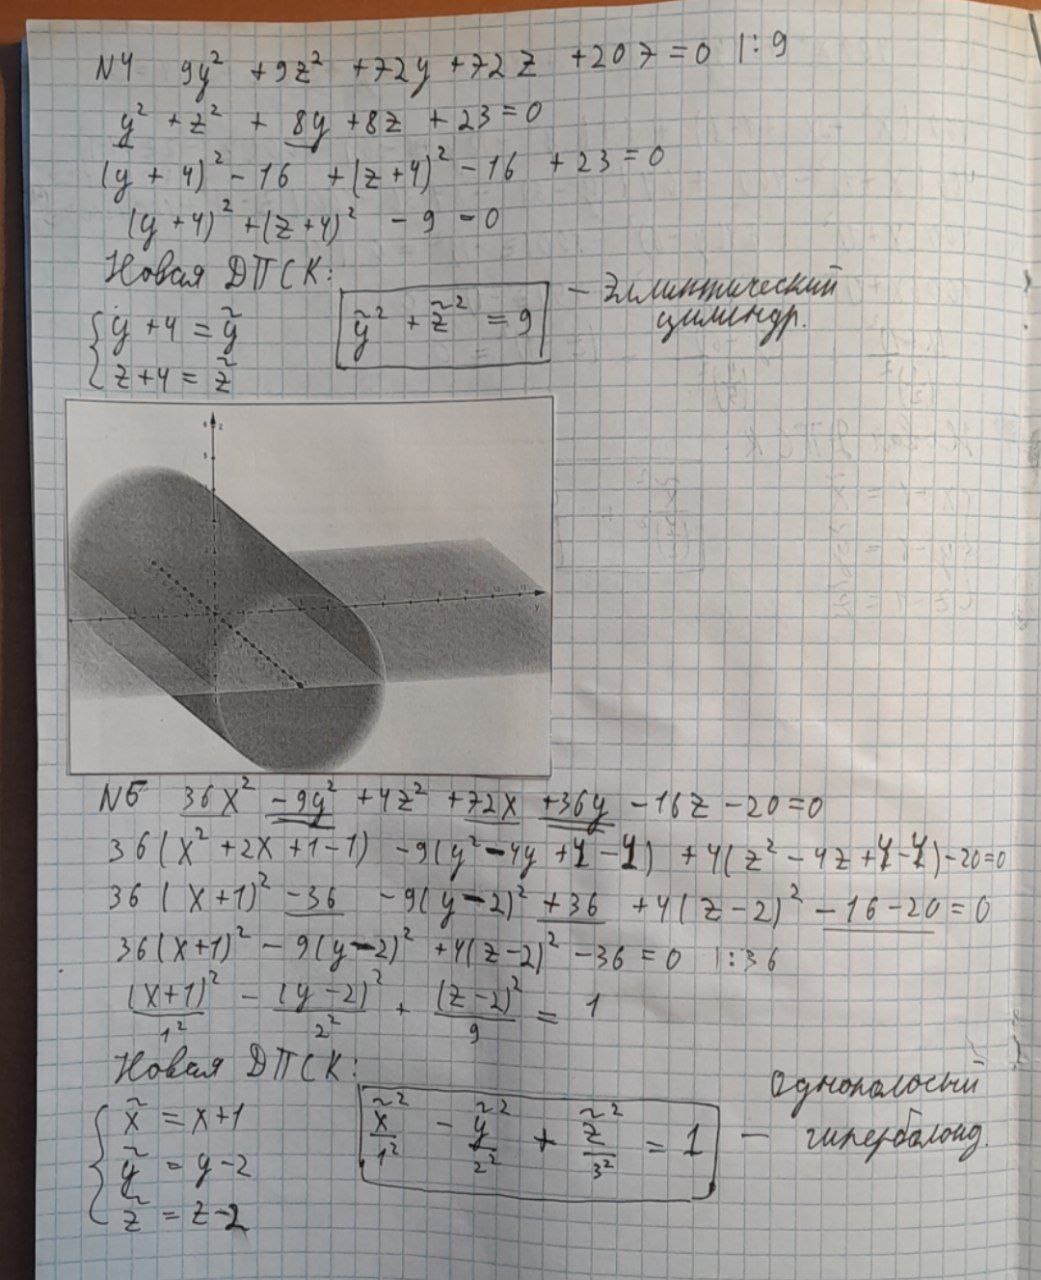 N4 9y² + 9z² + 72y + 72z + 207 = 0 |:9
y² + z² + 8y + 8z + 23 = 0
(y + 4)² - 16 + (z + 4)² - 16 + 23 = 0
(y + 4)² + (z + 4)² - 9 = 0
Новая ДПСК:
{ y + 4 = ỹ
z + 4 = z̃
ỹ² + z̃² = 9
- Эллиптический
цилиндр.
z
y
N5 36x² - 9y² + 4z² + 72x + 36y - 16z - 20 = 0
36(x² + 2x + 1 - 1) - 9(y² - 4y + 4 - 4) + 4(z² - 4z + 4 - 4) - 20 = 0
36(x + 1)² - 36 - 9(y - 2)² + 36 + 4(z - 2)² - 16 - 20 = 0
36(x + 1)² - 9(y - 2)² + 4(z - 2)² - 36 = 0 |:36
(x + 1)²/1² - (y - 2)²/2² + (z - 2)²/9 = 1
Новая ДПСК:
{ x̃ = x + 1
ỹ = y - 2
z̃ = z - 2
x̃²/1² - ỹ²/2² + z̃²/3² = 1
Однополосный
- гиперболоид.